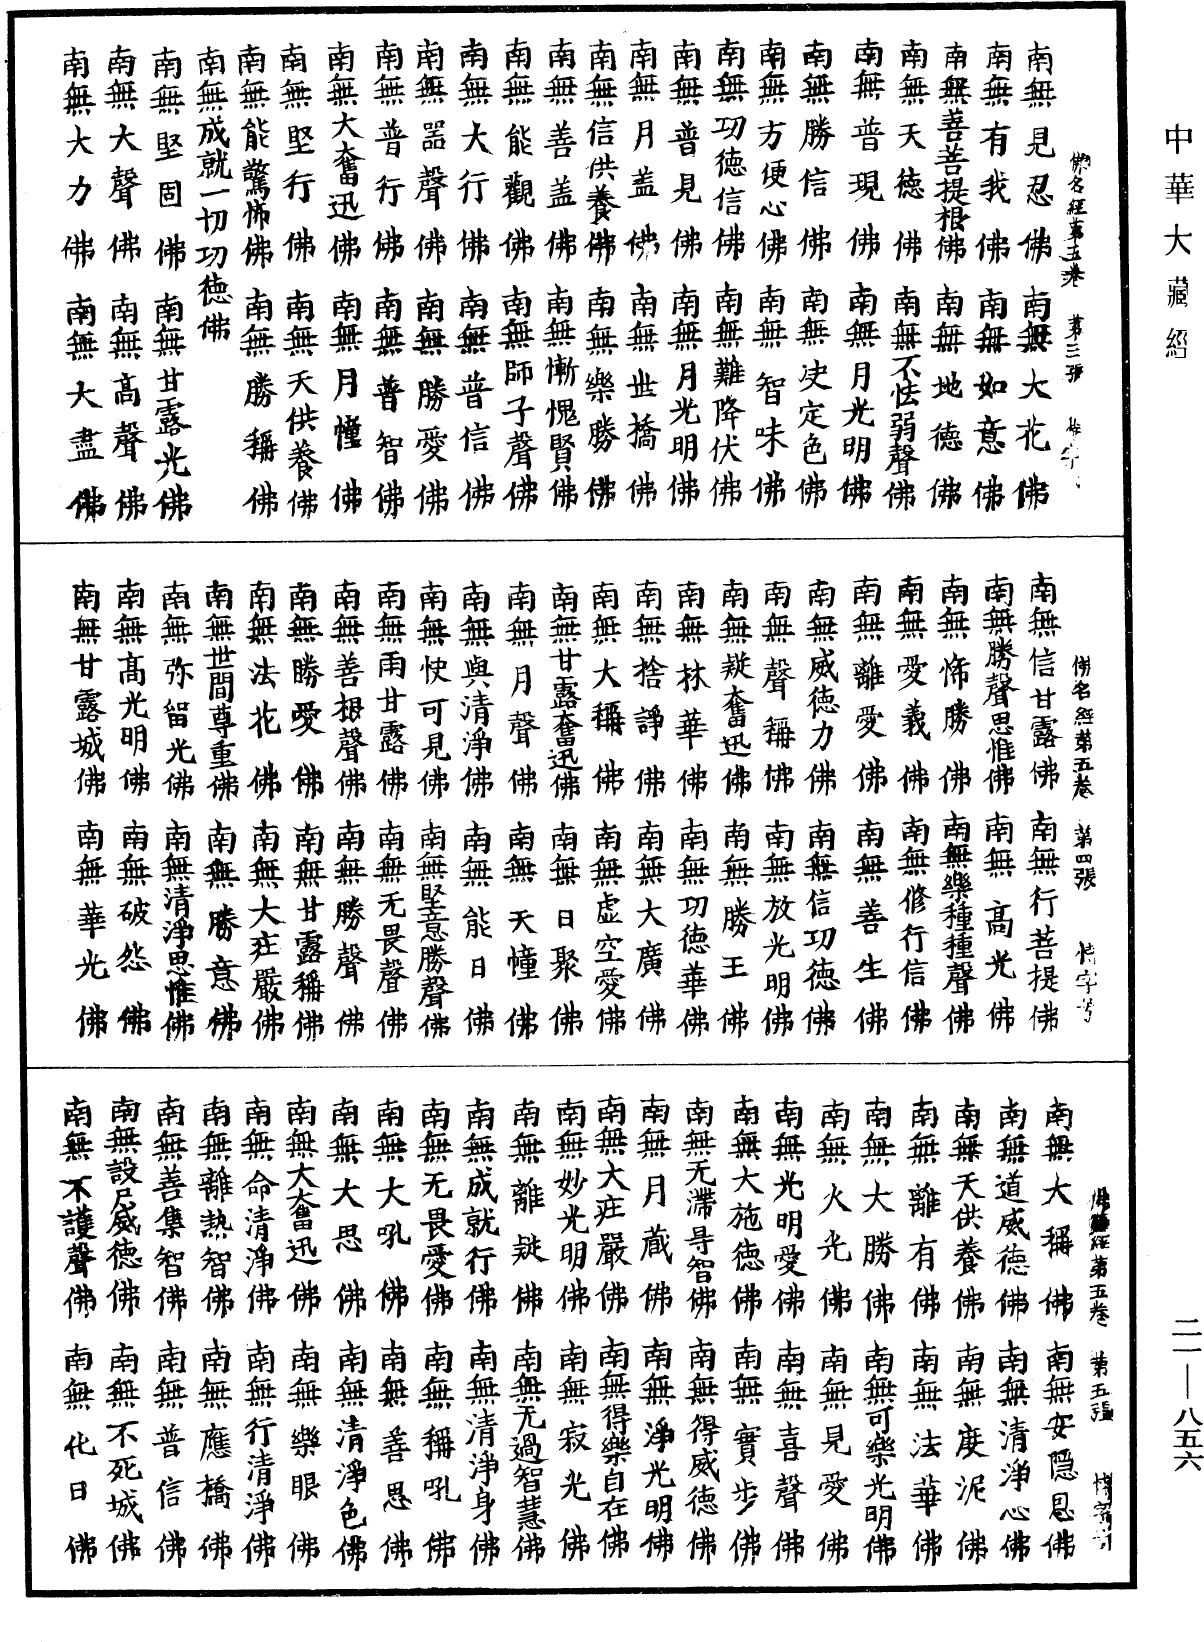 中華大藏經
南無見忍佛 南無大花佛
南無有我佛 南無如意佛
南無善菩提根佛 南無地德佛
南無天德佛 南無不怯弱聲佛
南無普現佛 南無月光明佛
南無勝信佛 南無决定色佛
南無方便心佛 南無智味佛
南無功德信佛 南無難降伏佛
南無普見佛 南無月光明佛
南無月盖佛 南無世橋佛
南無信供養佛 南無樂勝佛
南無善盖佛 南無慚愧賢佛
南無能觀佛 南無師子聲佛
南無大行佛 南無普信佛
南無噐聲佛 南無勝愛佛
南無普行佛 南無普智佛
南無大奮迅佛 南無月幢佛
南無堅行佛 南無天供養佛
南無能驚怖佛 南無勝稱佛
南無成就一切功德佛
南無堅固佛 南無甘露光佛
南無大聲佛 南無高聲佛
南無大力佛 南無大盡佛
佛名經第五卷 第三張
南無信甘露佛 南無行菩提佛
南無勝聲思惟佛 南無高光佛
南無怖勝佛 南無樂種種聲佛
南無愛義佛 南無修行信佛
南無離愛佛 南無善生佛
南無威德力佛 南無信功德佛
南無聲稱佛 南無放光明佛
南無疑奮迅佛 南無勝王佛
南無林華佛 南無功德華佛
南無捨諍佛 南無大廣佛
南無大稱佛 南無虚空愛佛
南無甘露奮迅佛 南無日聚佛
南無月聲佛 南無天幢佛
南無與清淨佛 南無能日佛
南無快可見佛 南無堅意勝聲佛
南無雨甘露佛 南無无畏聲佛
南無善根聲佛 南無勝聲佛
南無勝愛佛 南無甘露稱佛
南無法花佛 南無大庄嚴佛
南無世間尊重佛 南無勝意佛
南無弥留光佛 南無清淨思惟佛
南無高光明佛 南無破怨佛
南無甘露城佛 南無華光佛
佛名經第五卷 第四張
南無大稱佛 南無安隱恩佛
南無道威德佛 南無清淨心佛
南無天供養佛 南無度泥佛
南無離有佛 南無法華佛
南無大勝佛 南無可樂光明佛
南無火光佛 南無見愛佛
南無光明愛佛 南無喜聲佛
南無大施德佛 南無實步佛
南無无滯㝵智佛 南無得威德佛
南無月藏佛 南無淨光明佛
南無大庄嚴佛 南無得樂自在佛
南無妙光明佛 南無寂光佛
南無離疑佛 南無无過智慧佛
南無成就行佛 南無清淨身佛
南無无畏愛佛 南無稱吼佛
南無大吼佛 南無善思佛
南無大思佛 南無清淨色佛
南無大奮迅佛 南無樂眼佛
南無命清淨佛 南無行清淨佛
南無離熱智佛 南無應橋佛
南無善集智佛 南無普信佛
南無設尸威德佛 南無不死城佛
南無不護聲佛 南無化日佛
經第五卷 第五張
二一—八五六